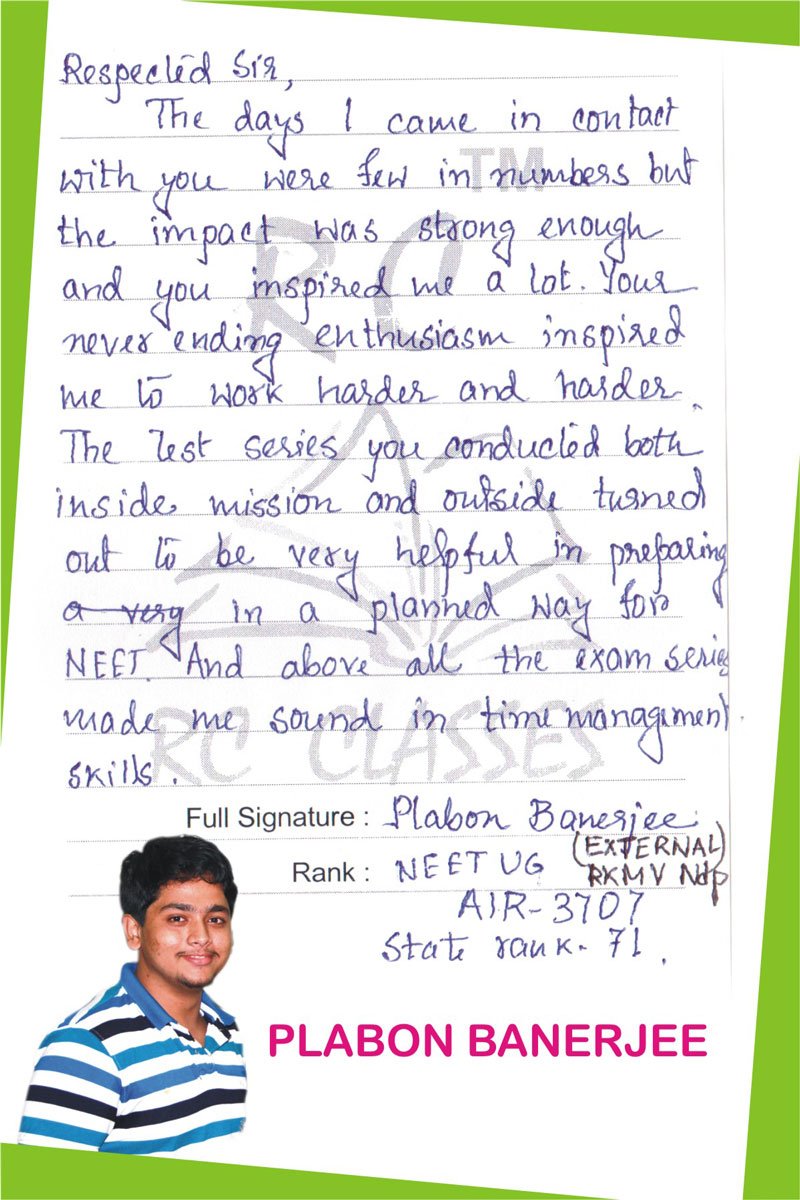 Respected Sir,
The days I came in contact
with you were few in numbers but
the impact was strong enough
and you inspired me a lot. Your
never ending enthusiasm inspired
me to work harder and harder.
The test series you conducted both
inside mission and outside turned
out to be very helpful in preparing
a very in a planned way for
NEET. And above all the exam series
made me sound in time management
skills.
TM
RC
RC CLASSES
Full Signature : Plabon Banerjee
(EXTERNAL)
Rank : NEET UG RKMV Ndp
AIR-3707
State rank- 71.
PLABON BANERJEE